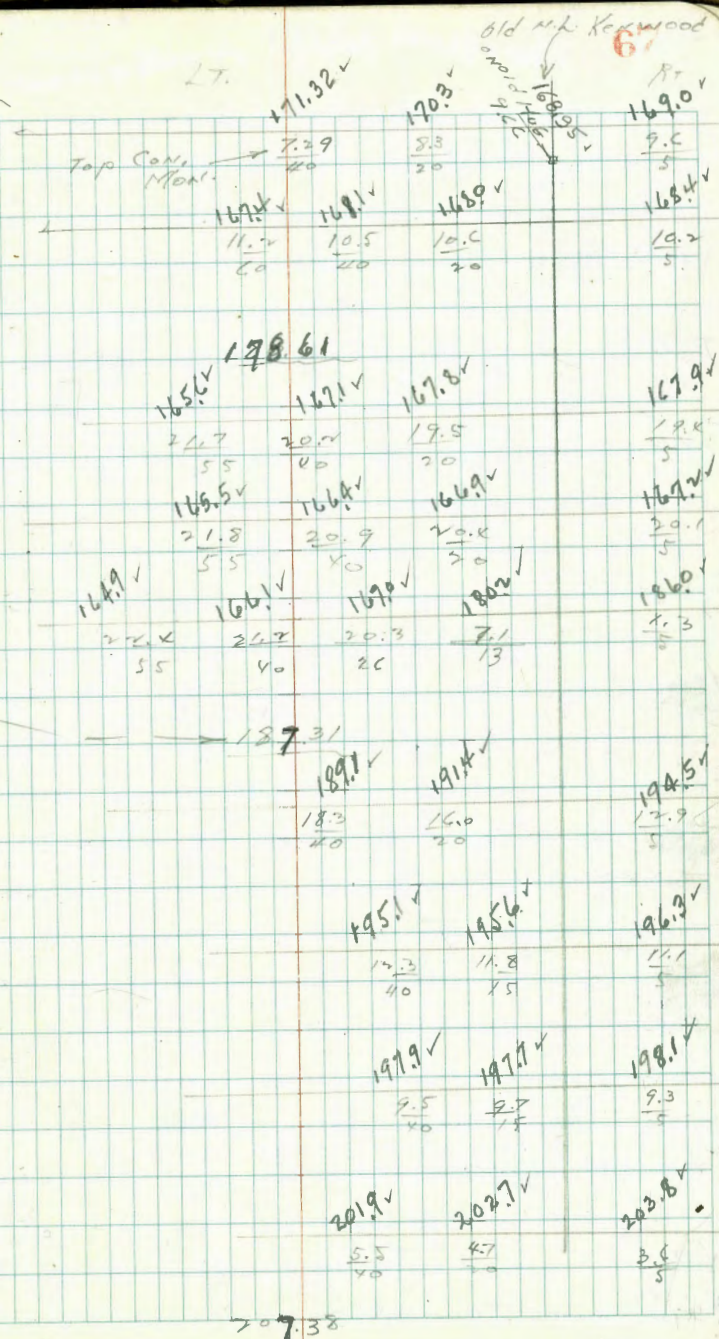 Old N.L. Kenwood
67
LT. RT
171.32✓ 170.3✓ 168.95✓ 169.0✓
Top Con. Mon. → 7.29/40 8.3/20 9.66 9.6/5
167.4✓ 168.1✓ 168.0✓ 168.4✓
11.2/60 10.5/40 10.6/20 10.2/5
178.61
165.6✓ 167.1✓ 167.8✓ 167.9✓
21.7/55 20.2/40 19.5/20 19.4/5
165.5✓ 166.4✓ 166.9✓ 167.2✓
21.8/55 20.9/40 20.4/20 20.1/5
164.9✓ 166.1✓ 169.0✓ 180.2✓ 186.0✓
22.4/55 21.2/40 20.3/26 7.1/13 1.3/5
187.31
189.1✓ 191.4✓ 194.5✓
18.3/40 16.0/20 12.9/5
195.1✓ 195.6✓ 196.3✓
12.3/40 11.8/15 11.1/5
197.9✓ 197.7✓ 198.1✓
9.5/40 9.7/15 9.3/5
201.9✓ 202.7✓ 203.8✓
5.5/40 4.7/20 3.6/5
207.38